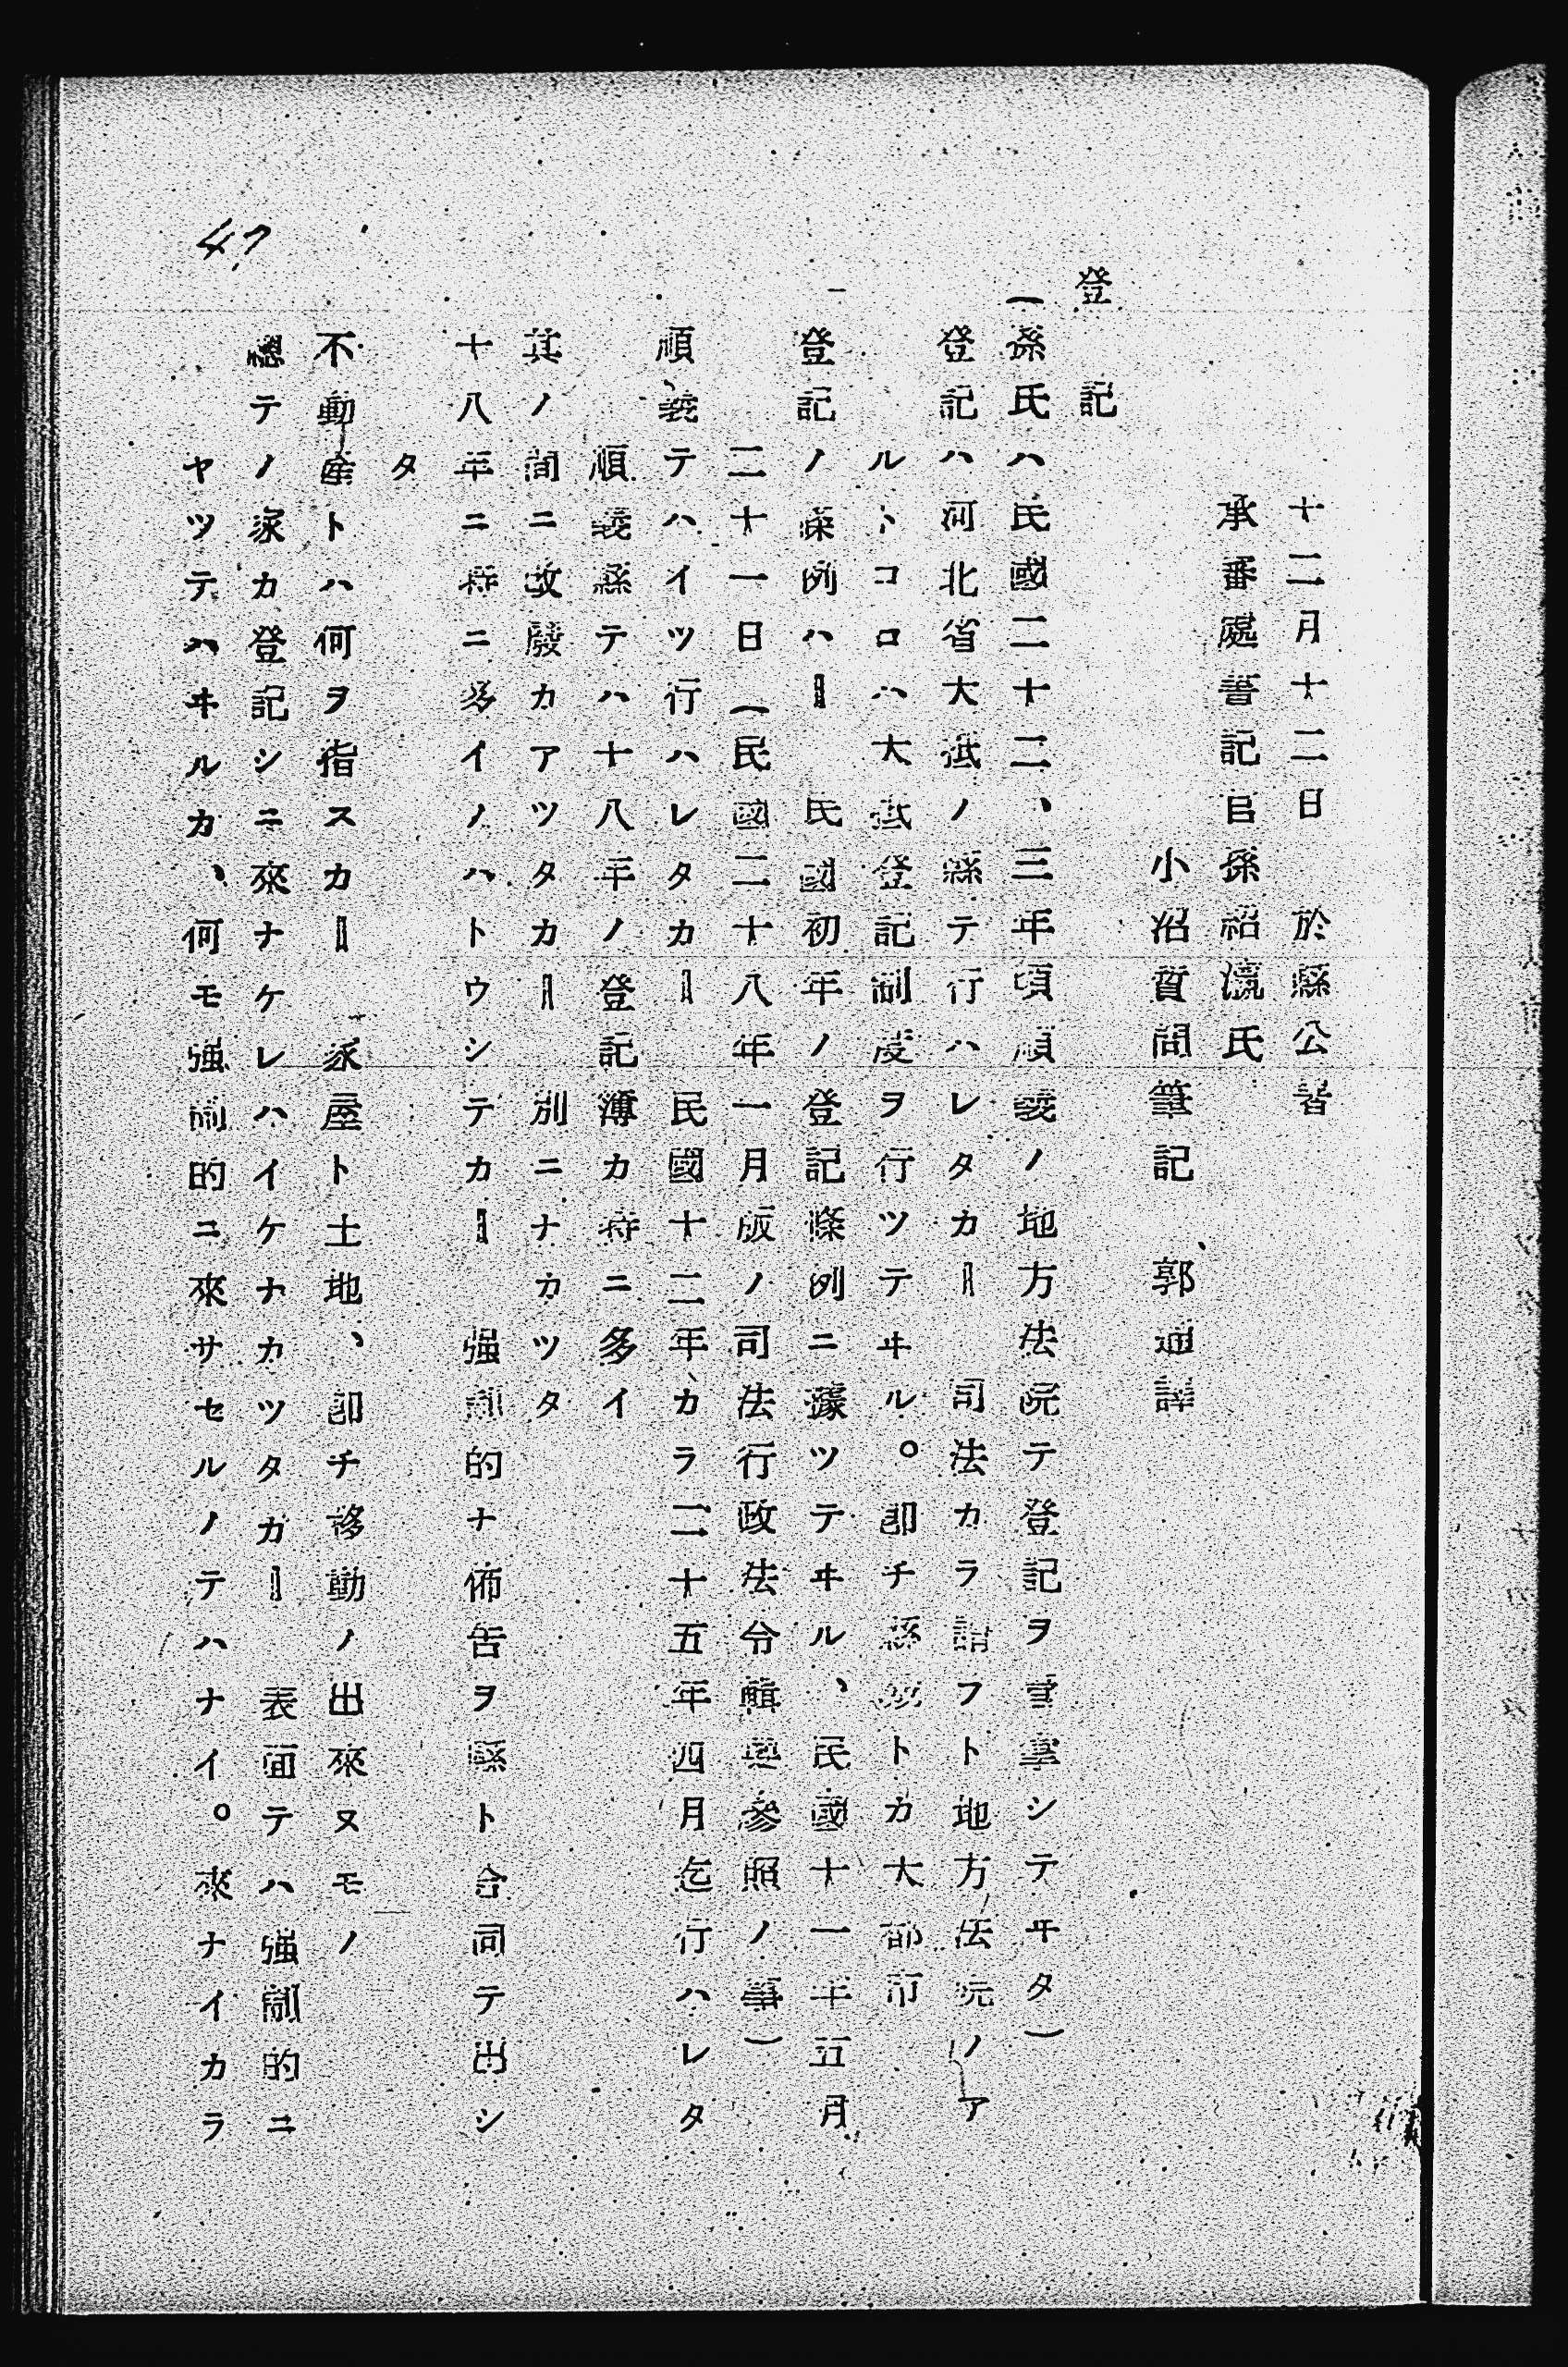 十二月十二日　於縣公署
承審處書記官孫紹瀛氏
小沼質問筆記　郭通譯
登　記
（孫氏ハ民國二十二、三年頃順義ノ地方法院テ登記ヲ管掌シテヰタ）
登記ハ河北省大抵ノ縣テ行ハレタカ＝　司法カラ謂フト地方法院ノア
ルトコロハ大抵登記制度ヲ行ツテヰル。卽チ縣城トカ大都市
登記ノ條例ハ＝　民國初年ノ登記條例ニ據ツテヰル、民國十一年五月
二十一日（民國二十八年一月版ノ司法行政法令輯要參照ノ事）
順義テハイツ行ハレタカ＝　民國十二年カラ二十五年四月迄行ハレタ
順義縣テハ十八年ノ登記簿カ特ニ多イ
其ノ間ニ改廢カアツタカ＝　別ニナカツタ
十八年ニ特ニ多イノハトウシテカ＝　强制的ナ佈告ヲ縣ト合同テ出シ
タ
不動產トハ何ヲ指スカ＝　家屋ト土地、卽チ移動ノ出來ヌモノ
總テノ家カ登記シニ來ナケレハイケナカツタカ＝　表面テハ强制的ニ
ヤツテハヰルカ、何モ强制的ニ來サセルノテハナイ。來ナイカラ
47